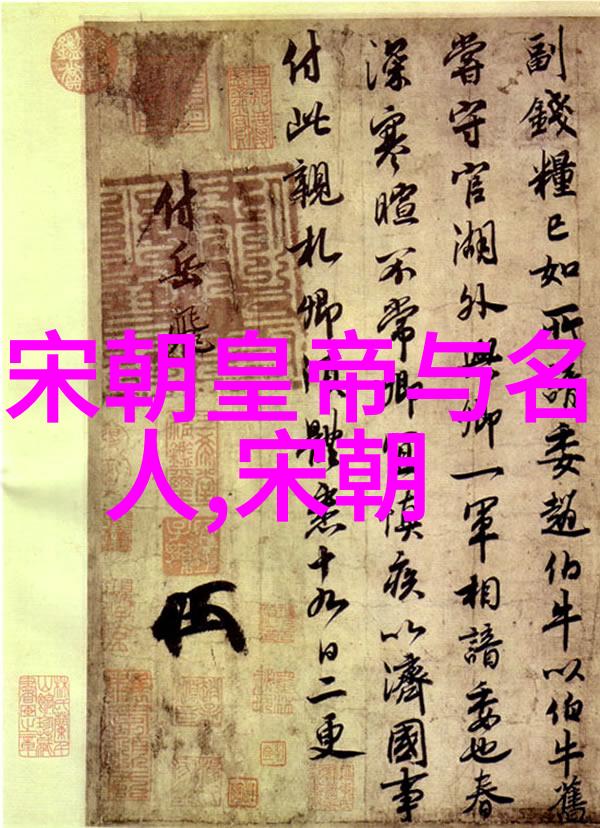 宋朝皇帝与名
人,宋朝
副錢糧已如所請委趙伯牛以伯牛舊
嘗守官湖外與卿一軍相諳委也春
深寒暄不常卿宜慎疾以濟國事
付此親札卿須體悉十九日二更
付岳飛